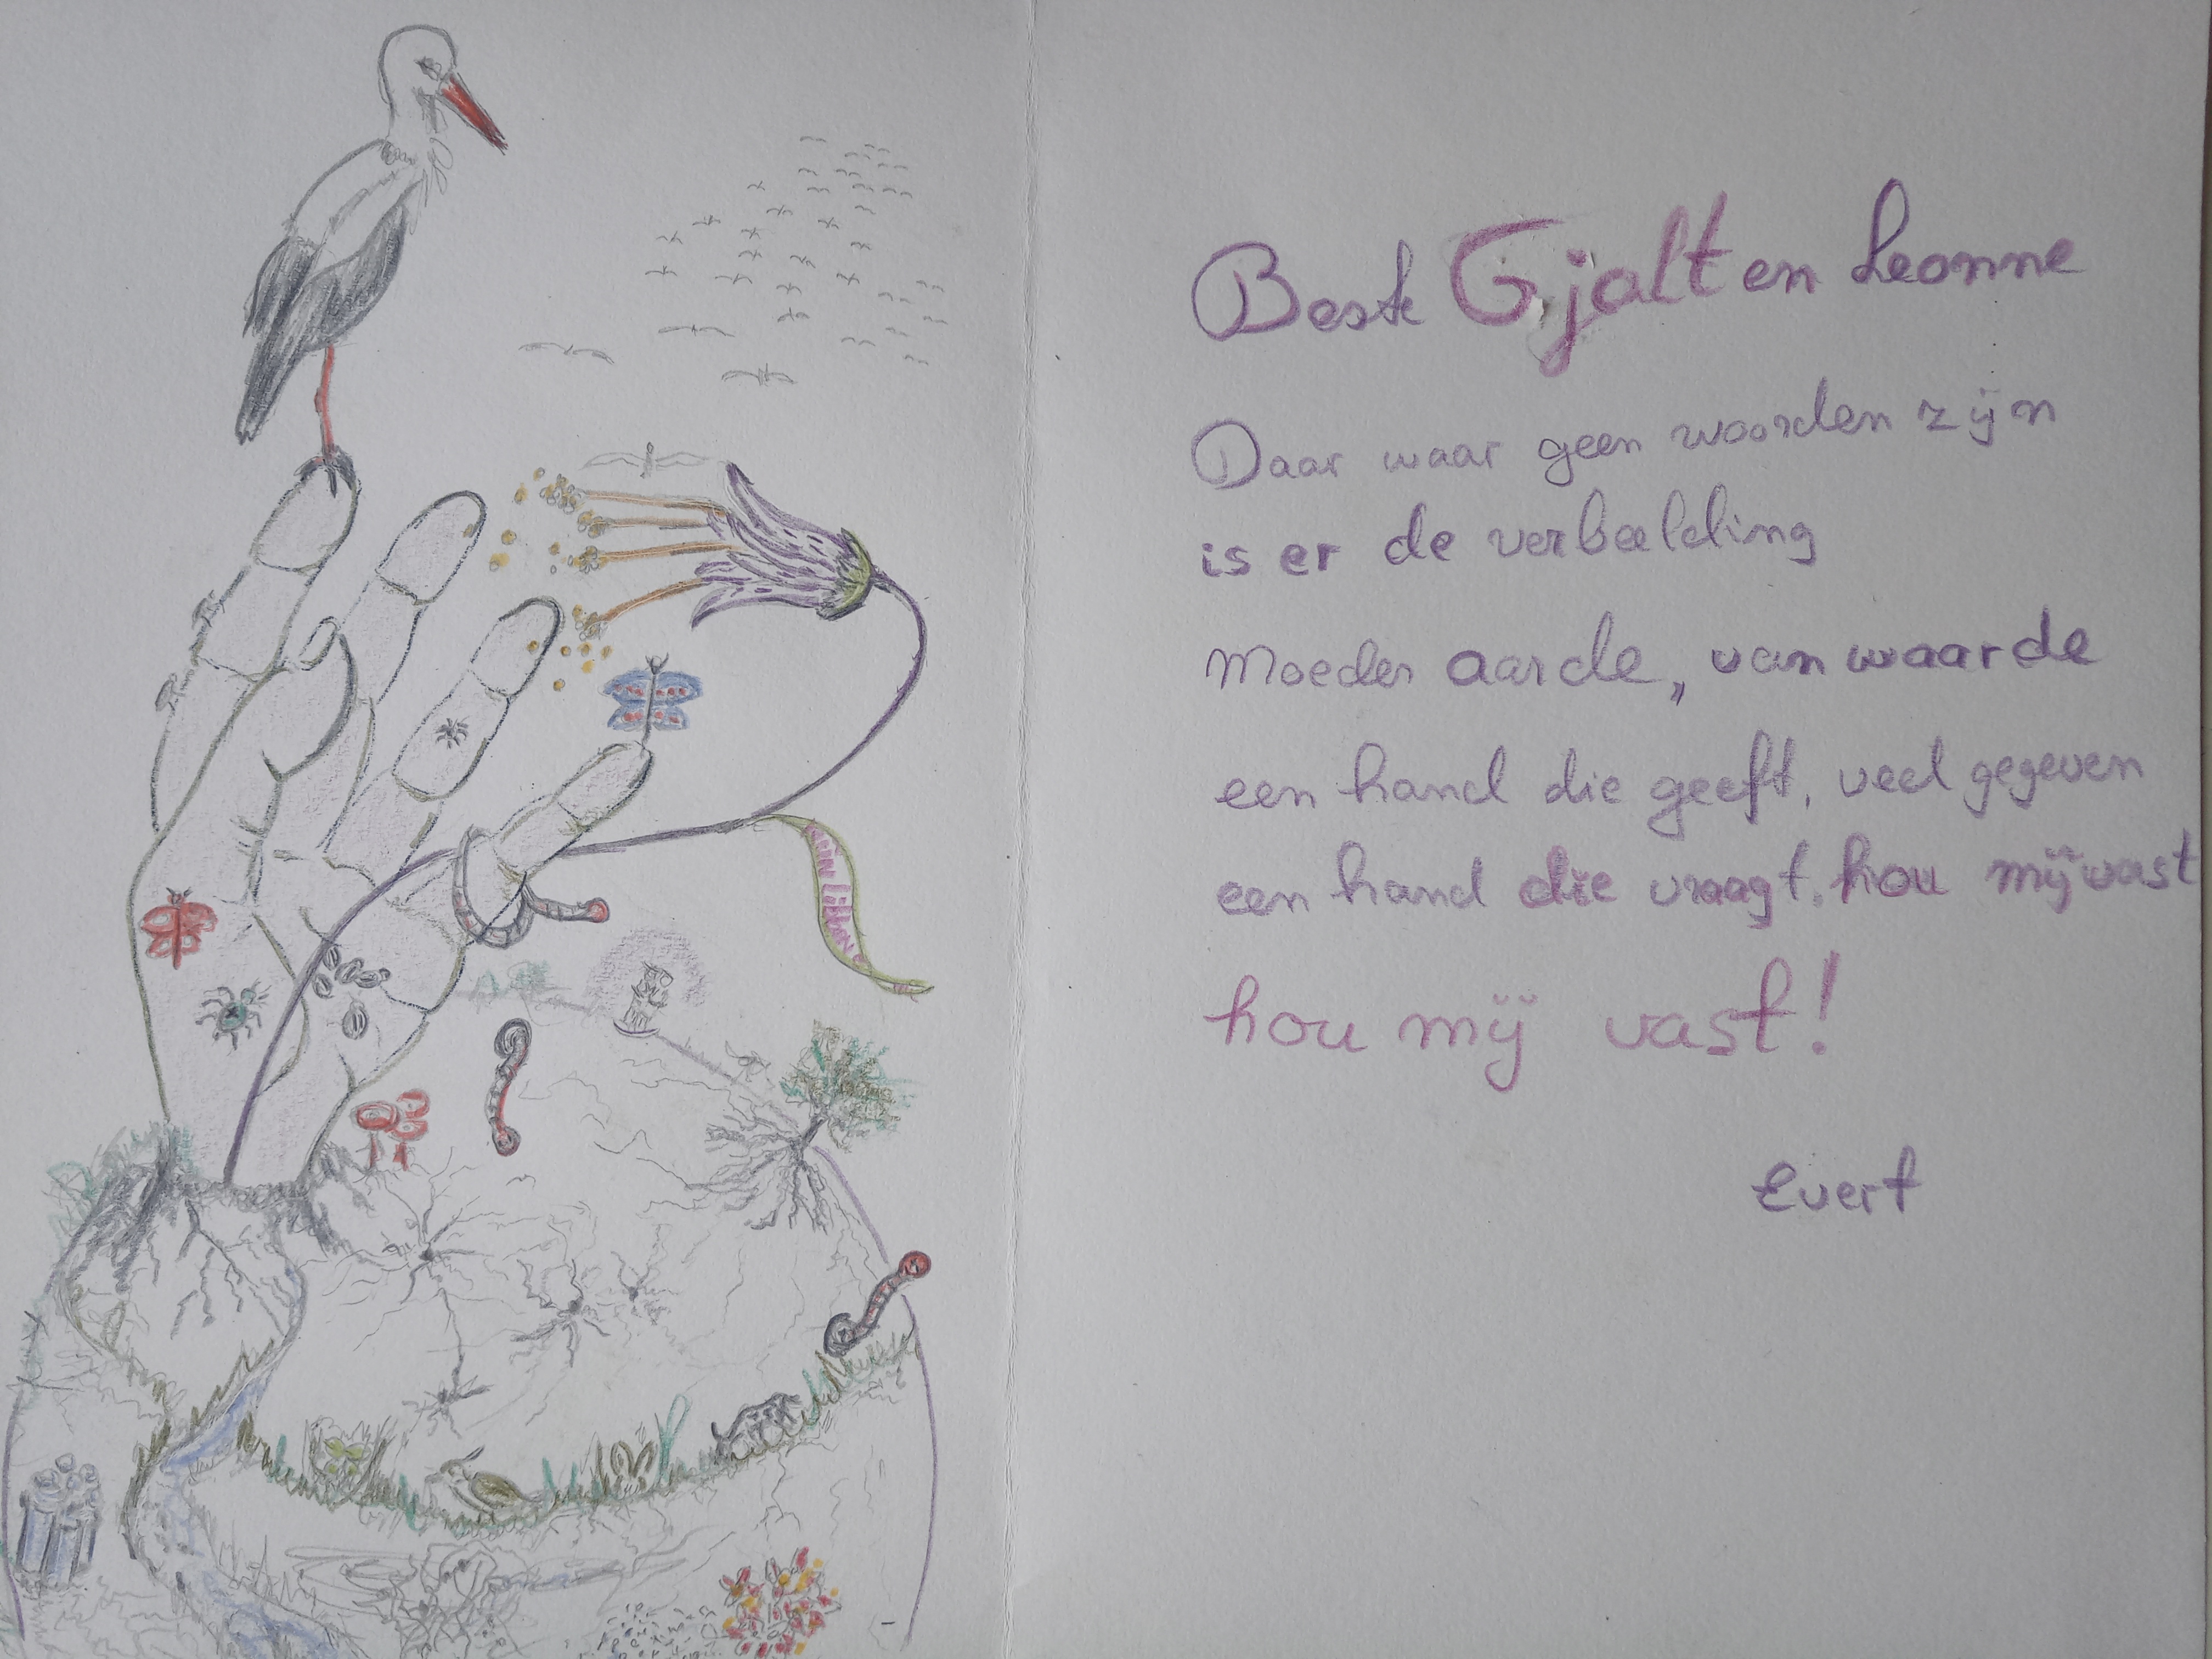 Beste Gjalt en Leonne
Daar waar geen woorden zijn
is er de verbeelding
Moeder aarde, van waarde
een hand die geeft, veel gegeven
een hand die vraagt. hou mij vast
hou mij vast!
Evert